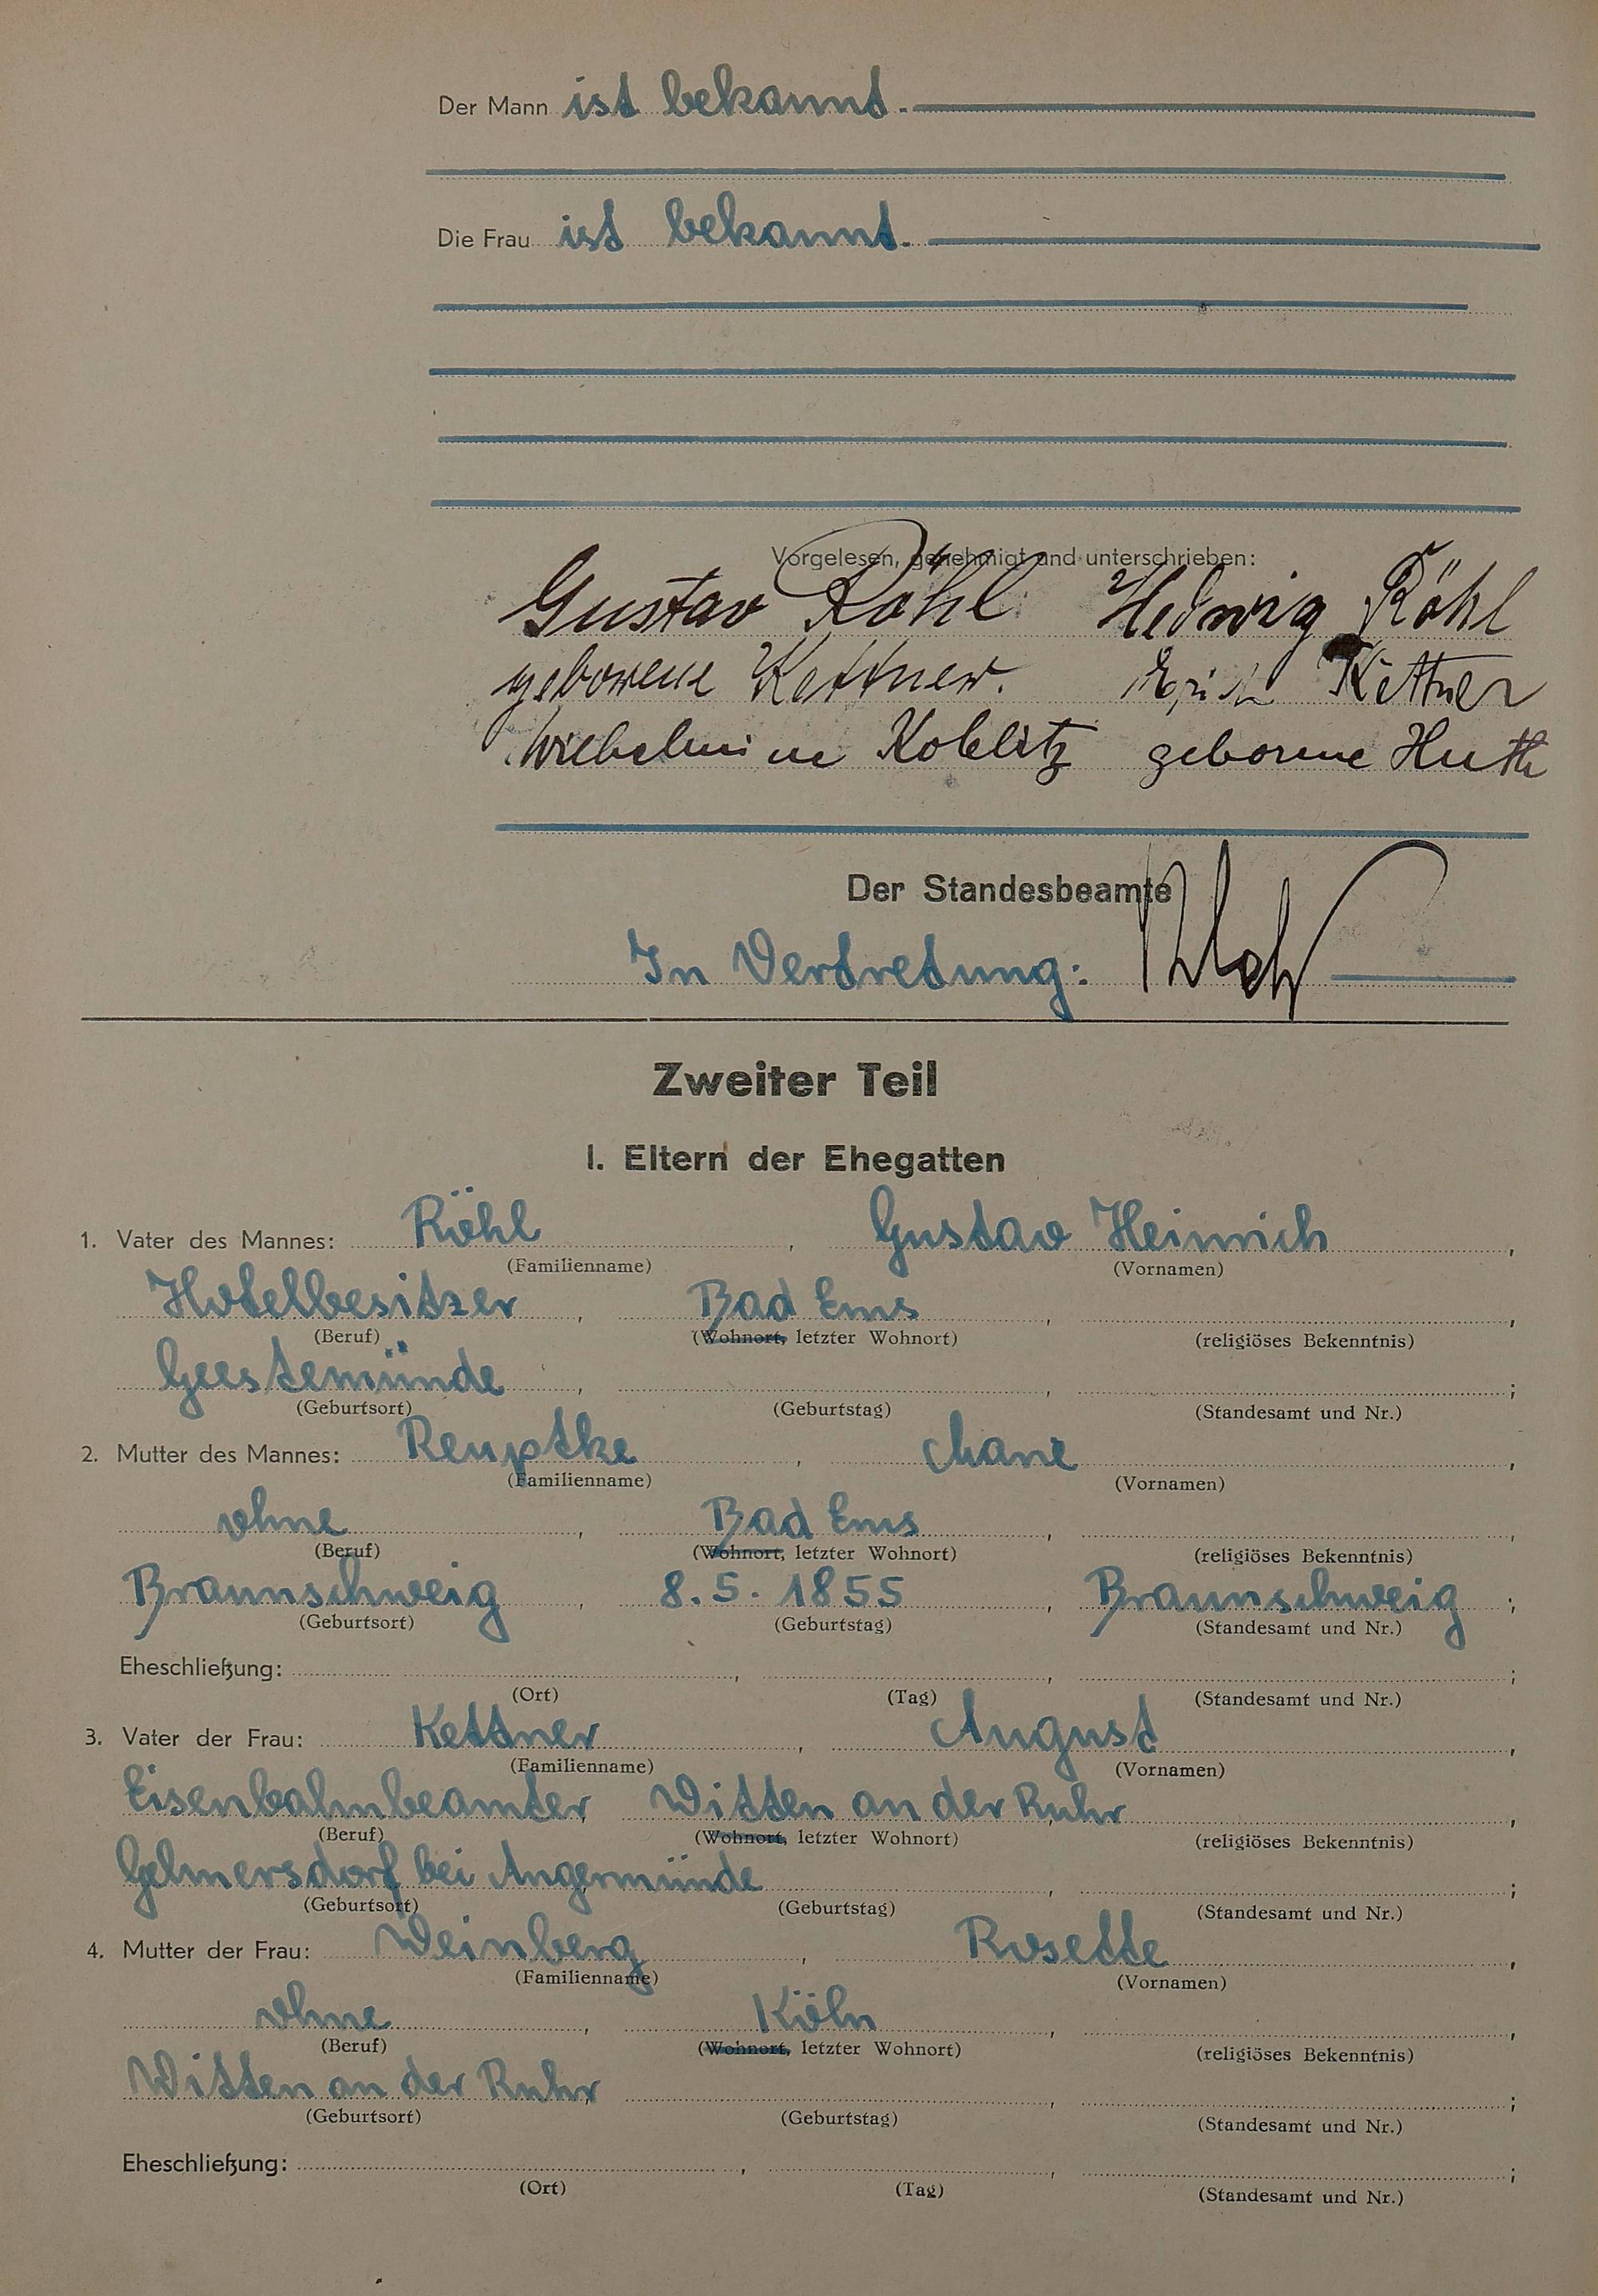 Der Mann ist bekannt.
Die Frau ist bekannt.
Vorgelesen, genehmigt und unterschrieben:
Gustav Röhl Hedwig Röhl
geborene Kettner. Erich Kettner
Wilhelmine Koblitz geborene Huth
Der Standesbeamte
In Vertretung:
Zweiter Teil
I. Eltern der Ehegatten
1. Vater des Mannes: Röhl, Gustav Heinrich,
(Familienname) (Vornamen)
Hotelbesitzer, Bad Ems, ,
(Beruf) (Wohnort, letzter Wohnort) (religiöses Bekenntnis)
Geestemünde, , ;
(Geburtsort) (Geburtstag) (Standesamt und Nr.)
2. Mutter des Mannes: Remptke, ,
(Familienname) (Vornamen)
ohne, Bad Ems, ,
(Beruf) (Wohnort, letzter Wohnort) (religiöses Bekenntnis)
Braunschweig, 8.5.1855, Braunschweig;
(Geburtsort) (Geburtstag) (Standesamt und Nr.)
Eheschließung: , , ;
(Ort) (Tag) (Standesamt und Nr.)
3. Vater der Frau: Kettner, August,
(Familienname) (Vornamen)
Eisenbahnbeamter, Witten an der Ruhr, ,
(Beruf) (Wohnort, letzter Wohnort) (religiöses Bekenntnis)
Gelmersdorf bei Angermünde, , ;
(Geburtsort) (Geburtstag) (Standesamt und Nr.)
4. Mutter der Frau: Weinberg, Rosette,
(Familienname) (Vornamen)
ohne, Köln, ,
(Beruf) (Wohnort, letzter Wohnort) (religiöses Bekenntnis)
Witten an der Ruhr, , ;
(Geburtsort) (Geburtstag) (Standesamt und Nr.)
Eheschließung: , , ;
(Ort) (Tag) (Standesamt und Nr.)